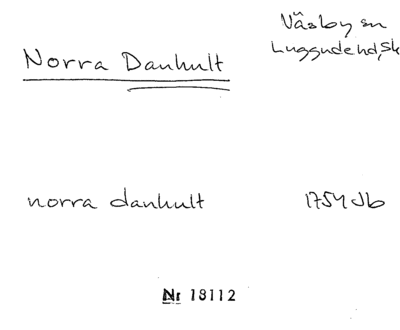 Väsby sn
Luggude hd, Sk
Norra Danhult
norra danhult 1754 Jb
Nr 18112